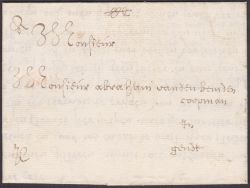 Monsieur
Monsieur abraham vanden bemden
coopman
In
gendt